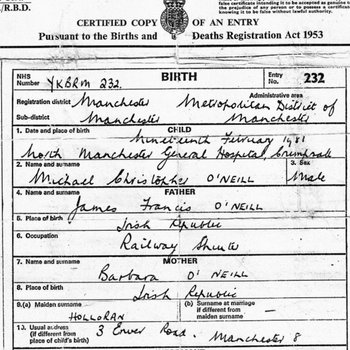 /R.B.D.
CERTIFIED COPY OF AN ENTRY
Pursuant to the Births and Deaths Registration Act 1953
NHS Number YKBRM 232.
BIRTH
Entry No. 232
Registration district Manchester
Administrative area
Sub-district Manchester
Metropolitan District of Manchester
CHILD
1. Date and place of birth Nineteenth February 1981
North Manchester General Hospital, Crumpsall
2. Name and surname
3. Sex
Michael Christopher O'NEILL
Male
FATHER
4. Name and surname
James Francis O'NEILL
5. Place of birth
Irish Republic
6. Occupation
Railway Shunter
MOTHER
7. Name and surname
Barbara O'NEILL
8. Place of birth
Irish Republic
9.(a) Maiden surname
HOLLORAN
(b) Surname at marriage if different from maiden surname
10. Usual address (if different from place of child's birth)
3 Road, Manchester 8